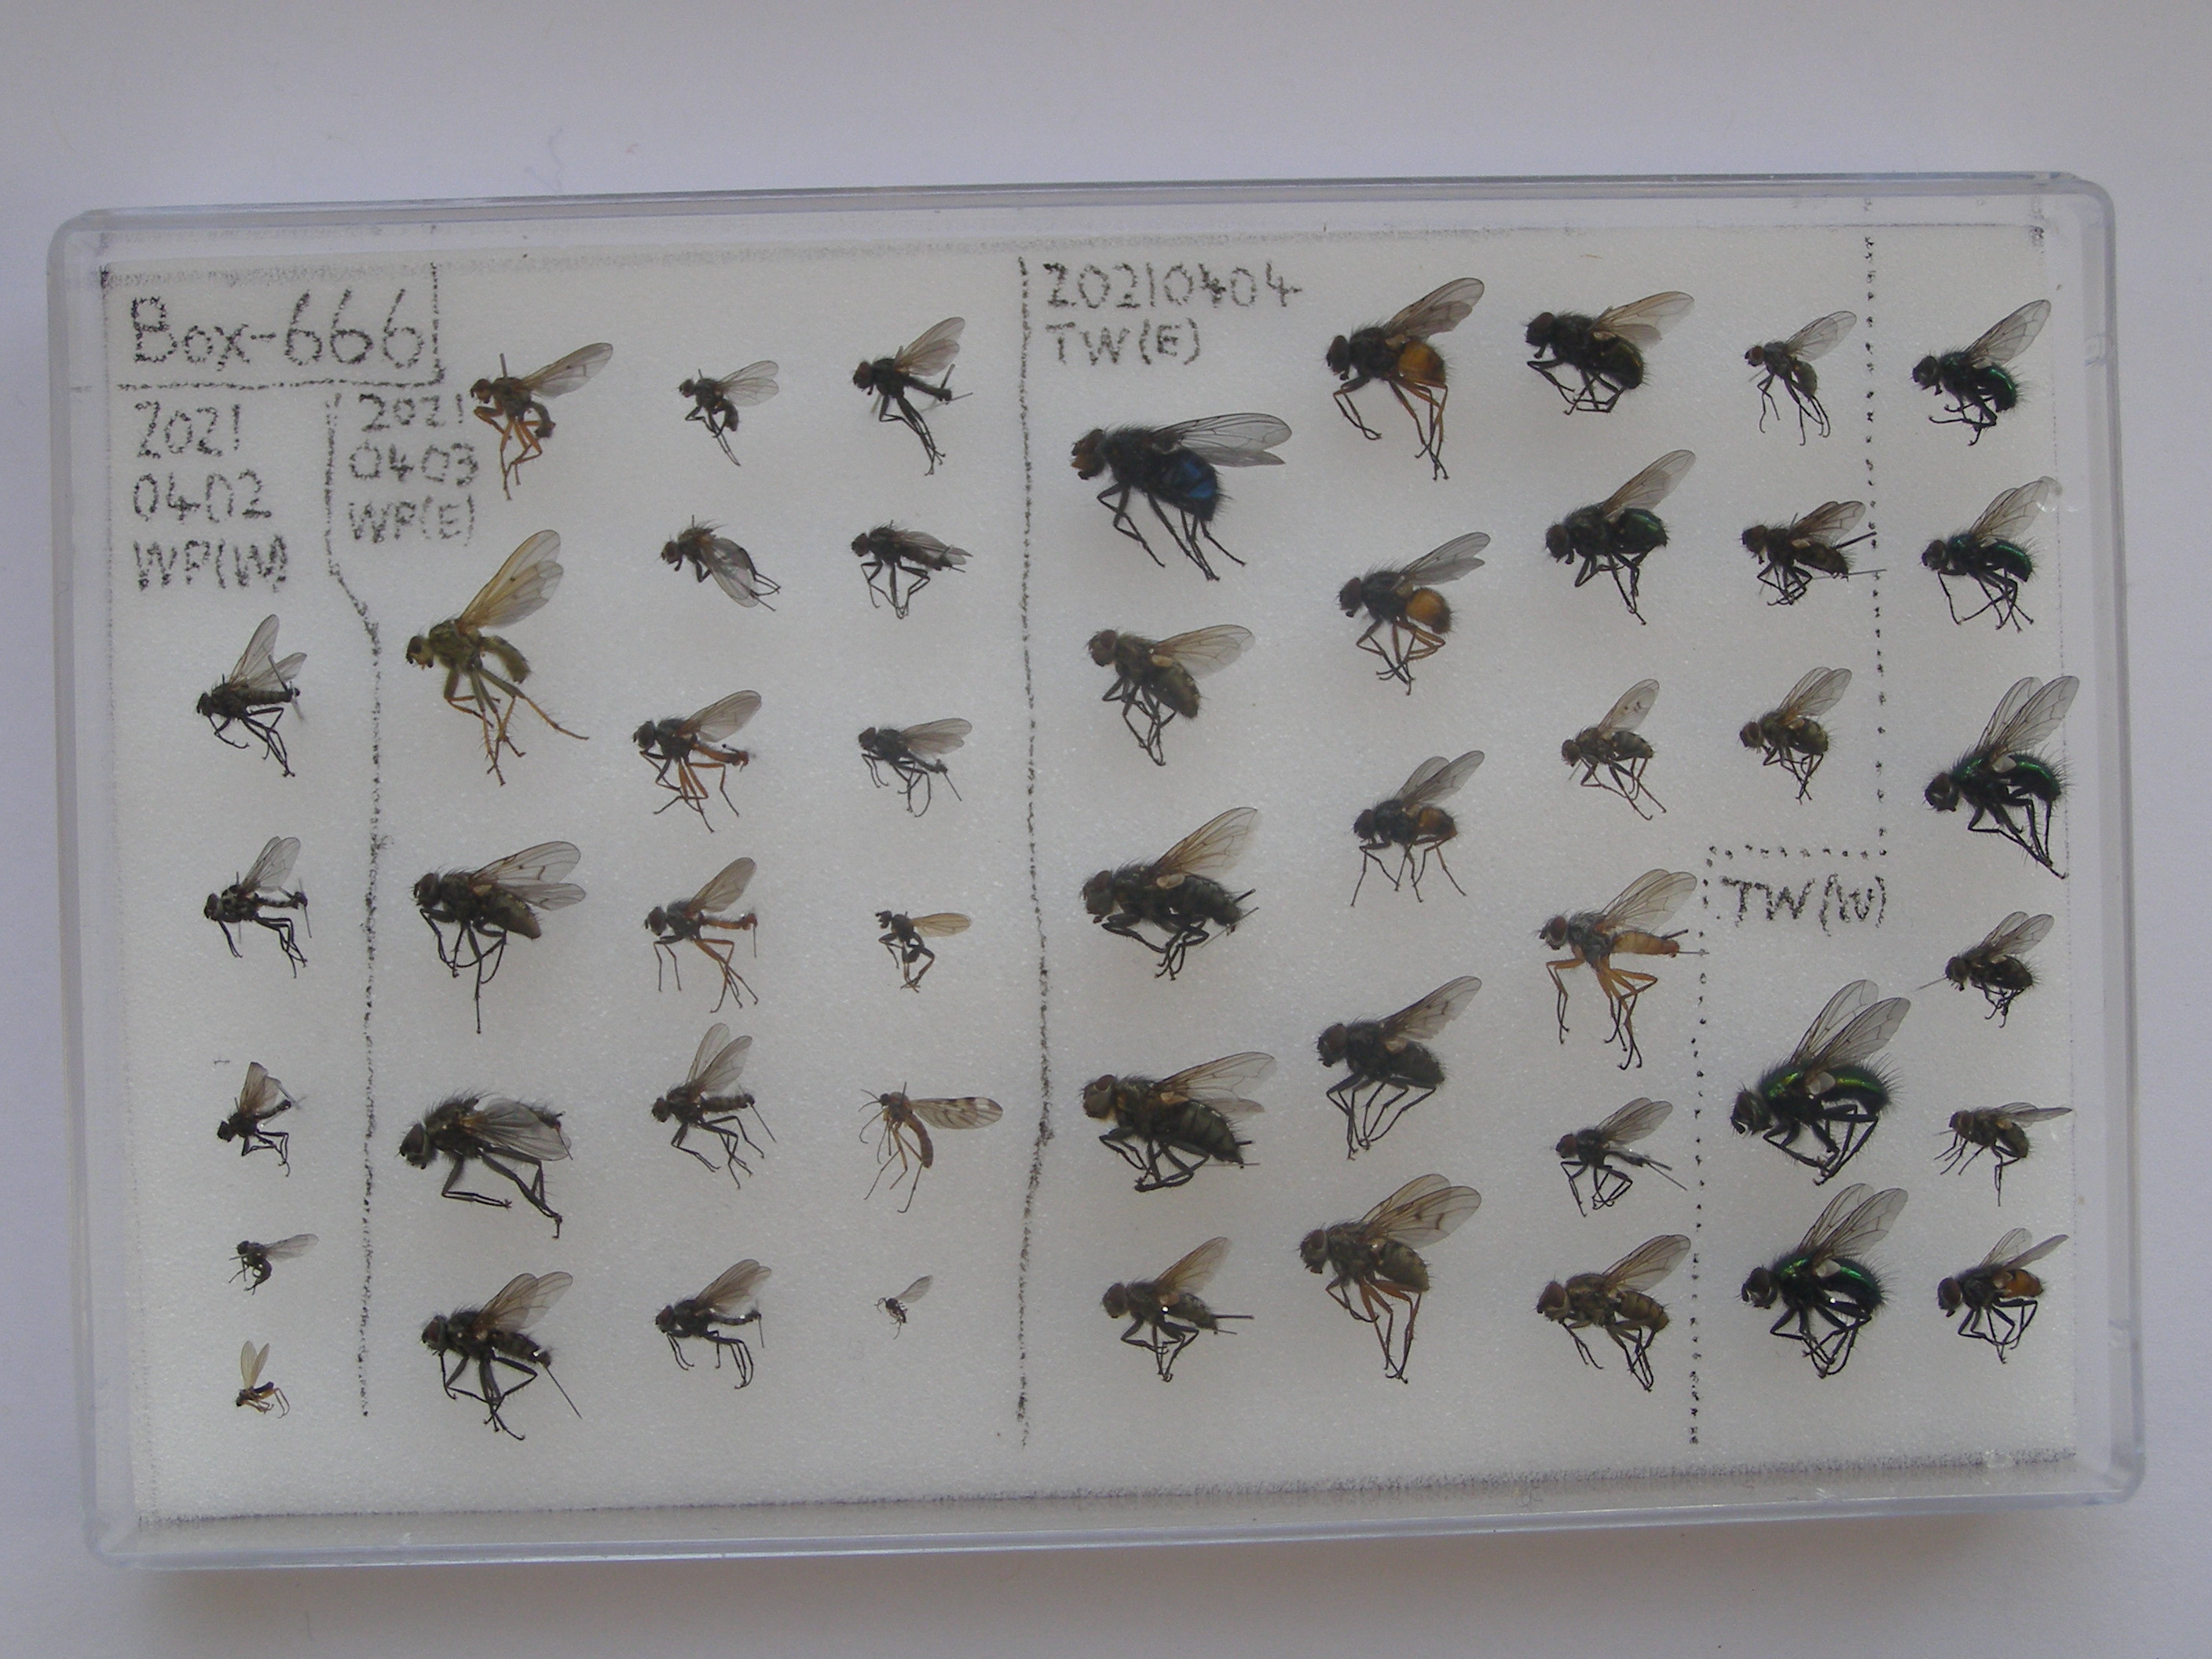 Box-666
2021
0402
WP(W)
2021
0403
WP(E)
20210404
TW(E)
TW(W)